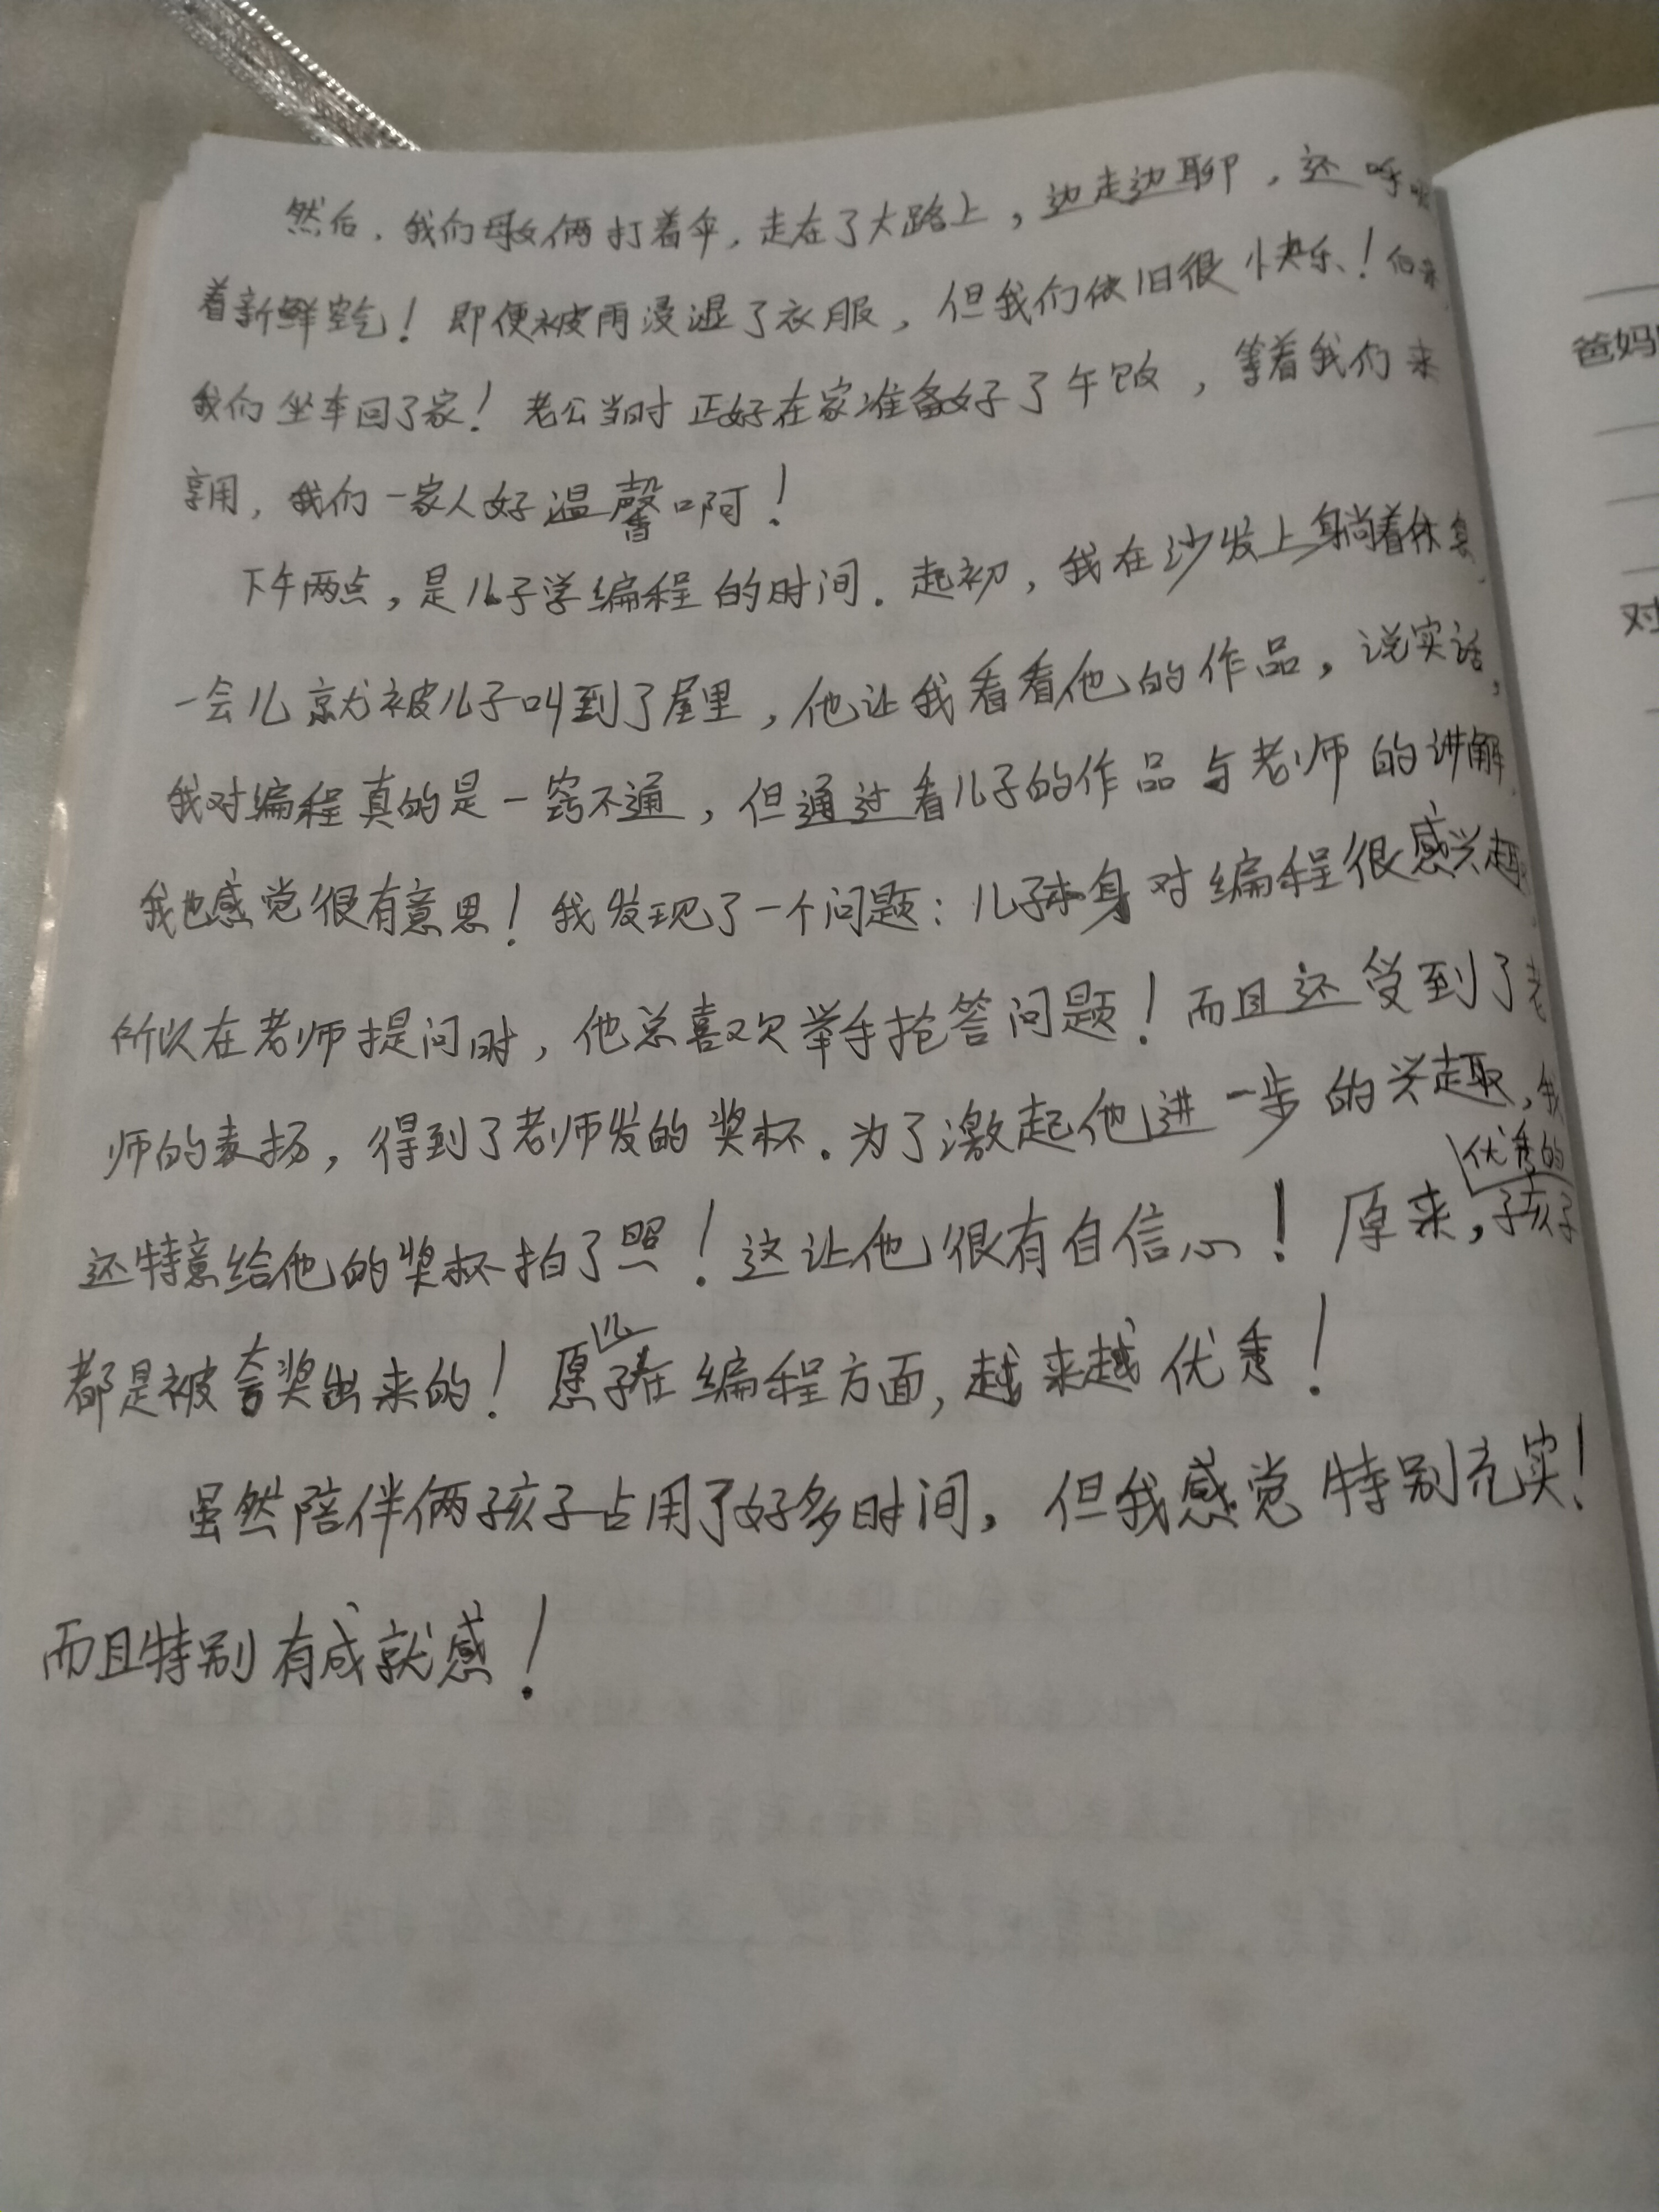 然后，我们母女俩打着伞，走在了大路上，边走边聊，还呼吸
着新鲜空气！即便被雨浸湿了衣服，但我们依旧很快乐！后来
我们坐车回了家！老公当时正好在家准备好了午饭，等着我们来
享用，我们一家人好温馨啊！
下午两点，是儿子学编程的时间。起初，我在沙发上躺着休息，
一会儿就被儿子叫到了屋里，他让我看看他的作品，说实话，
我对编程真的是一窍不通，但通过看儿子的作品与老师的讲解，
我也感觉很有意思！我发现了一个问题：儿子本身对编程很感兴趣，
所以在老师提问时，他总喜欢举手抢答问题！而且还受到了老
师的表扬，得到了老师发的奖杯。为了激起他进一步的兴趣，我
还特意给他的奖杯拍了照！这让他很有自信心！原来，优秀的孩子
都是被夸奖出来的！愿儿子在编程方面，越来越优秀！
虽然陪伴俩孩子占用了好多时间，但我感觉特别充实！
而且特别有成就感！
爸妈
对